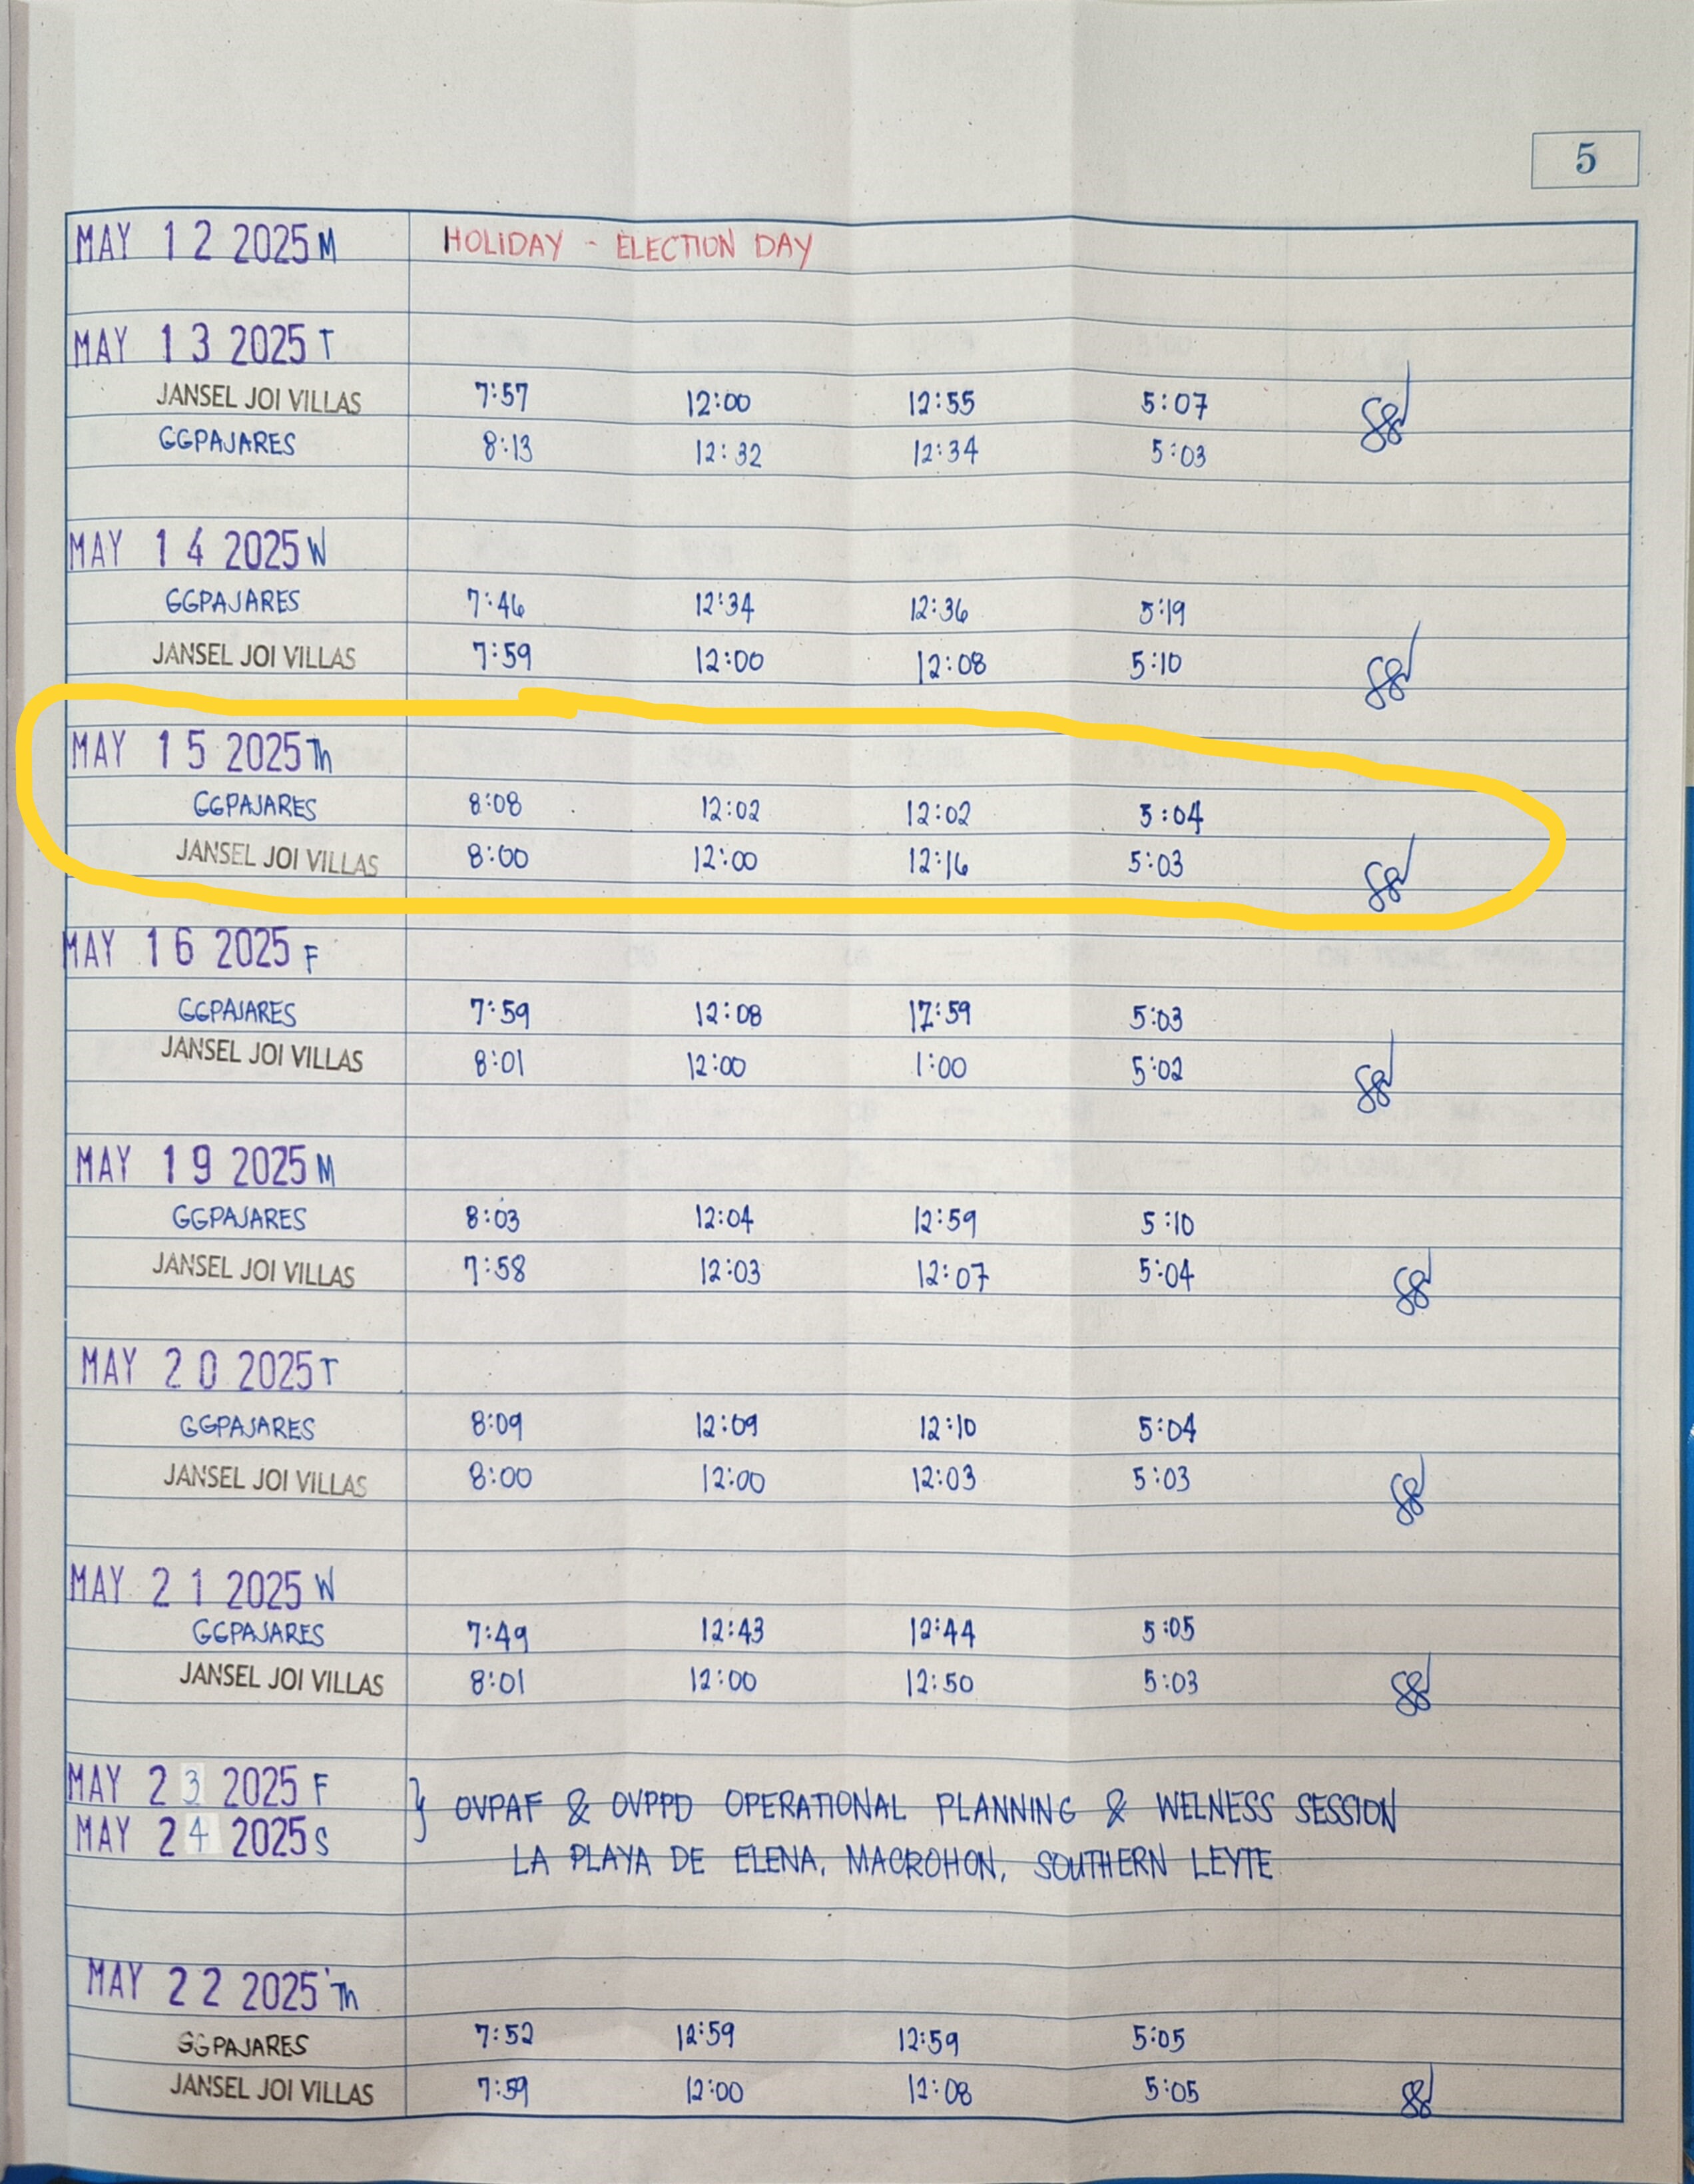 5
MAY 12 2025 M HOLIDAY - ELECTION DAY
MAY 13 2025 T
JANSEL JOI VILLAS 7:57 12:00 12:55 5:07
GGPAJARES 8:13 12:32 12:34 5:03
MAY 14 2025 W
GGPAJARES 7:46 12:34 12:36 5:19
JANSEL JOI VILLAS 7:59 12:00 12:08 5:10
MAY 15 2025 Th
GGPAJARES 8:08 12:02 12:02 5:04
JANSEL JOI VILLAS 8:00 12:00 12:16 5:03
MAY 16 2025 F
GGPAJARES 7:59 12:08 12:59 5:03
JANSEL JOI VILLAS 8:01 12:00 1:00 5:02
MAY 19 2025 M
GGPAJARES 8:03 12:04 12:59 5:10
JANSEL JOI VILLAS 7:58 12:03 12:07 5:04
MAY 20 2025 T
GGPAJARES 8:09 12:09 12:10 5:04
JANSEL JOI VILLAS 8:00 12:00 12:03 5:03
MAY 21 2025 W
GGPAJARES 7:49 12:43 12:44 5:05
JANSEL JOI VILLAS 8:01 12:00 12:50 5:03
MAY 23 2025 F } OVPAF & OVPPD OPERATIONAL PLANNING & WELNESS SESSION
MAY 24 2025 S LA PLAYA DE ELENA, MACROHON, SOUTHERN LEYTE
MAY 22 2025 Th
GGPAJARES 7:52 12:59 12:59 5:05
JANSEL JOI VILLAS 7:59 12:00 12:08 5:05